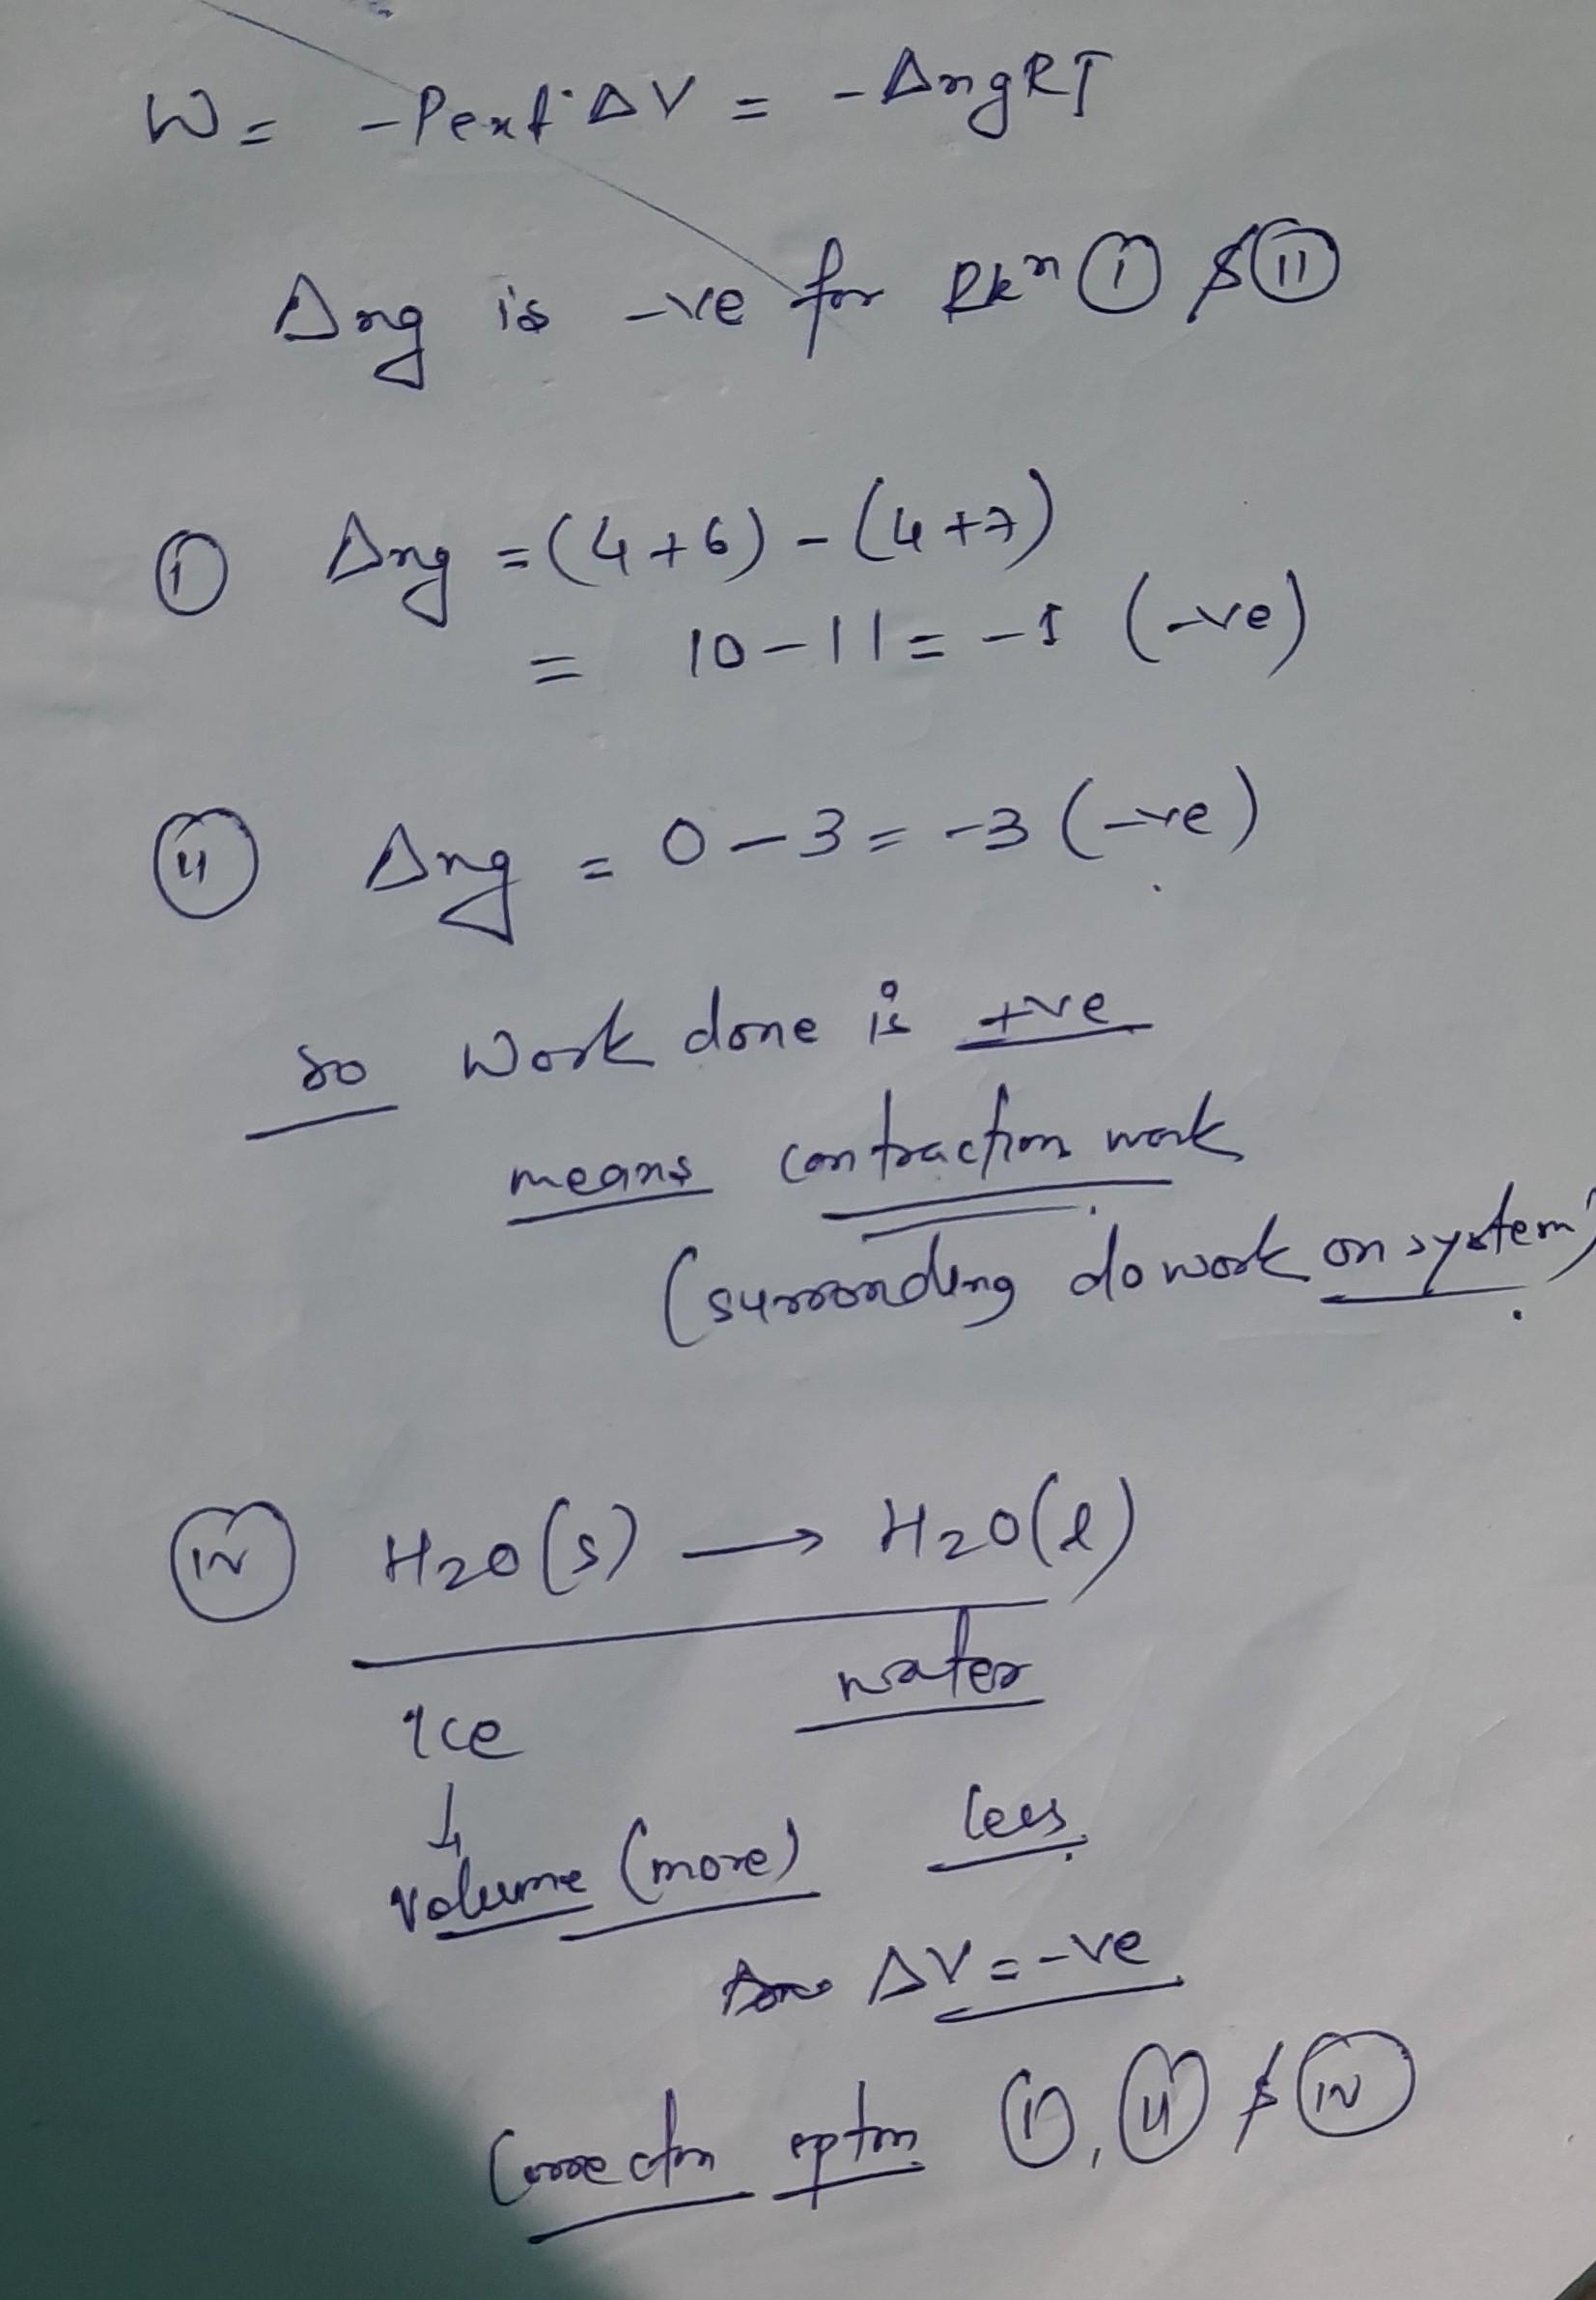 W = -Pext·ΔV = -ΔngRT
Δng is -ve for Rkn (i) & (ii)
(i) Δng = (4+6) - (4+7)
= 10-11 = -1 (-ve)
(ii) Δng = 0-3 = -3 (-ve)
so work done is +ve
means contraction work
(surronding do work on system)
(iv) H2O(s) → H2O(l)
ice water
↓
volume (more) less
ΔV = -ve
(i), (ii) & (iv)